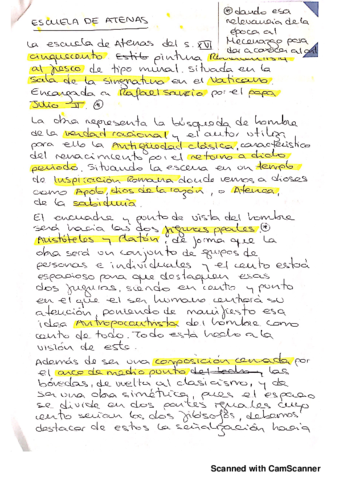 ESCUELA DE ATENAS
⊛ dando esa
relevancia de la
época al
Mecenazgo para
dar a conocer al
La escuela de Atenas del s. XVI
cinquecento Estilo pintura Renacentista
al fresco de tipo mural. Situada en la
Sala de la Signatura en el Vaticano.
Encargada a Rafael Sanzio por el papa
Julio II ⊛
La obra representa la búsqueda de hombre
de la verdad racional y el autor utiliza
para ello la Antigüedad clásica, característico
del renacimiento por el retorno a dicho
periodo, situando la escena en un templo
de Inspiración Romana donde vemos a dioses
como Apolo, dios de la razón, o Atenea,
de la sabiduría.
El encuadre y punto de vista del hombre
será hacia las dos figuras ppales ⊛
Aristóteles y Platón, de forma que la
obra será un conjunto de grupos de
personas e individuales y el centro estará
espacioso para que destaquen esas
dos figuras, siendo en centro y punto
en el que el ser humano centrará su
atención, poniendo de manifiesto esa
idea Antropocentrista del hombre como
centro de todo. Todo está hecho a la
visión de este.
Además de ser una composición cerrada por
el arco de medio punto del techo y las
bóvedas, de vuelta al clasicismo, y de
ser una obra simétrica, pues el espacio
se divide en dos partes iguales cuyo
centro serían los dos filósofos, debemos
destacar de estos la señalización hacia
Scanned with CamScanner